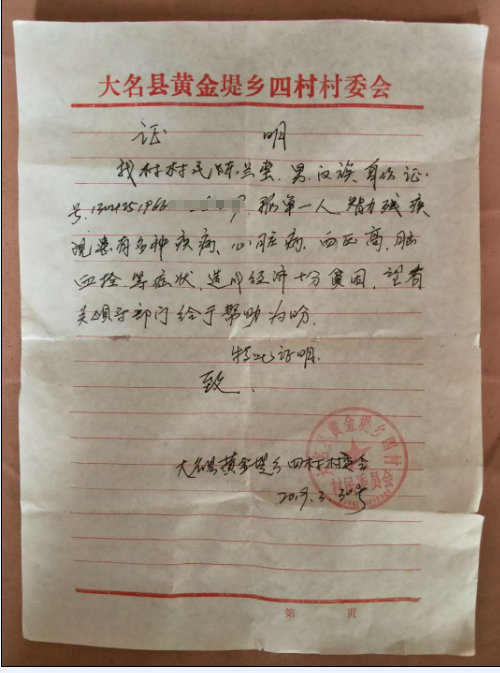 大名县黄金堤乡四村村委会
证 明
我村村民陈兰奎、男、汉族、身份证
号,1321251962 号,孤单一人,智力残疾
现患有多种疾病、心脏病、血压高、脑
血栓、等症状,造成经济十分贫困,望有
关领导部门给于帮助为盼.
特此证明.
致.
大名县黄金堤乡四村村委会
2019.3.30号
大名县黄金堤乡四村
村民委员会
第 页